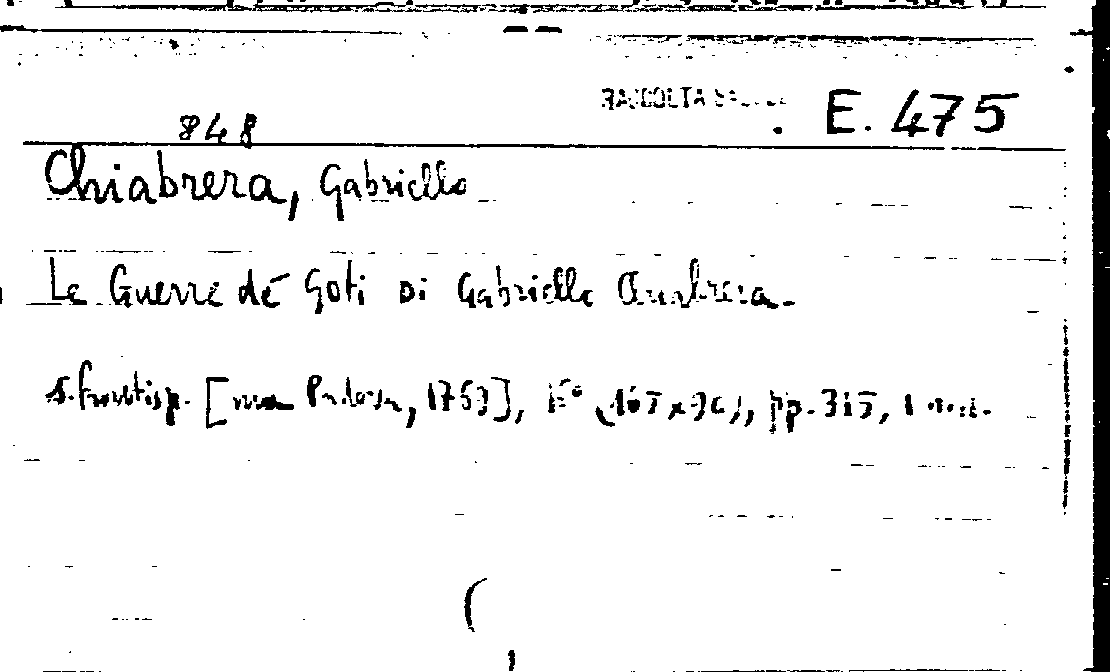 RACCOLTA
E. 475
848
Chiabrera, Gabriello
Le Guerre de' Goti Di Gabriello Chiabrera.
s. frontisp. [ma Padova, 1753], pp. 315, 1